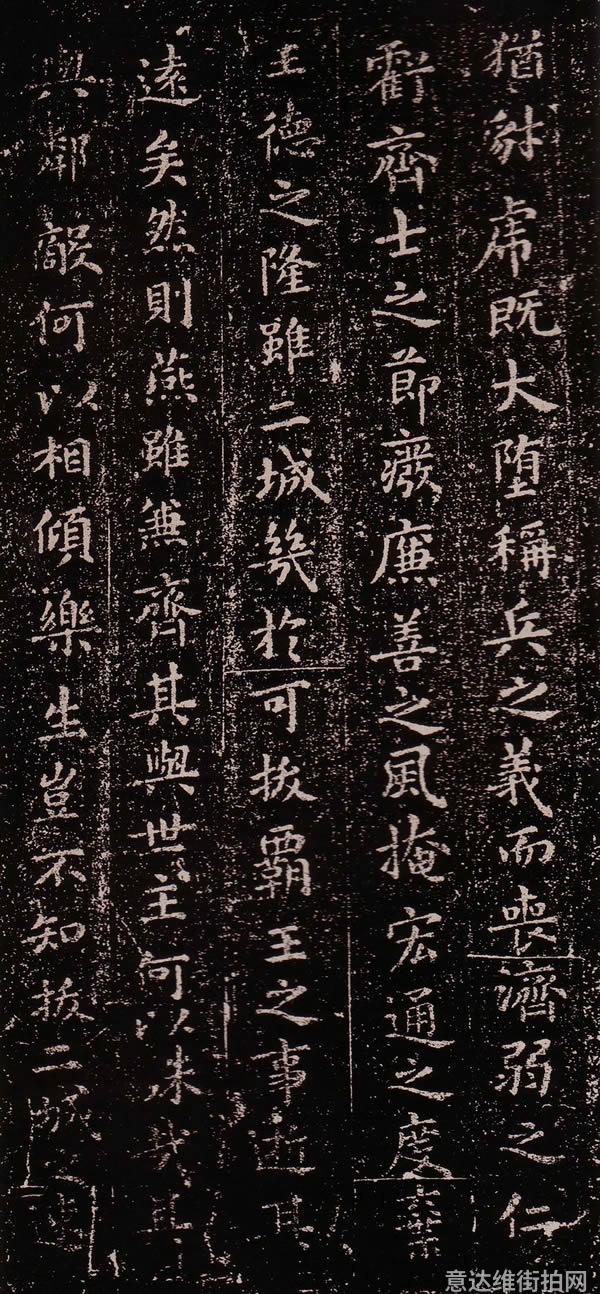 猶豺虎既大堕稱兵之義而喪濟弱之仁
虧齊士之節廢廉善之風掩宏通之度棄
王德之隆雖二城幾於可拔霸王之事逝其
遠矣然則燕雖兼齊其與世主何以殊哉其
與鄰敵何以相傾樂生豈不知拔二城之速
意达维街拍网